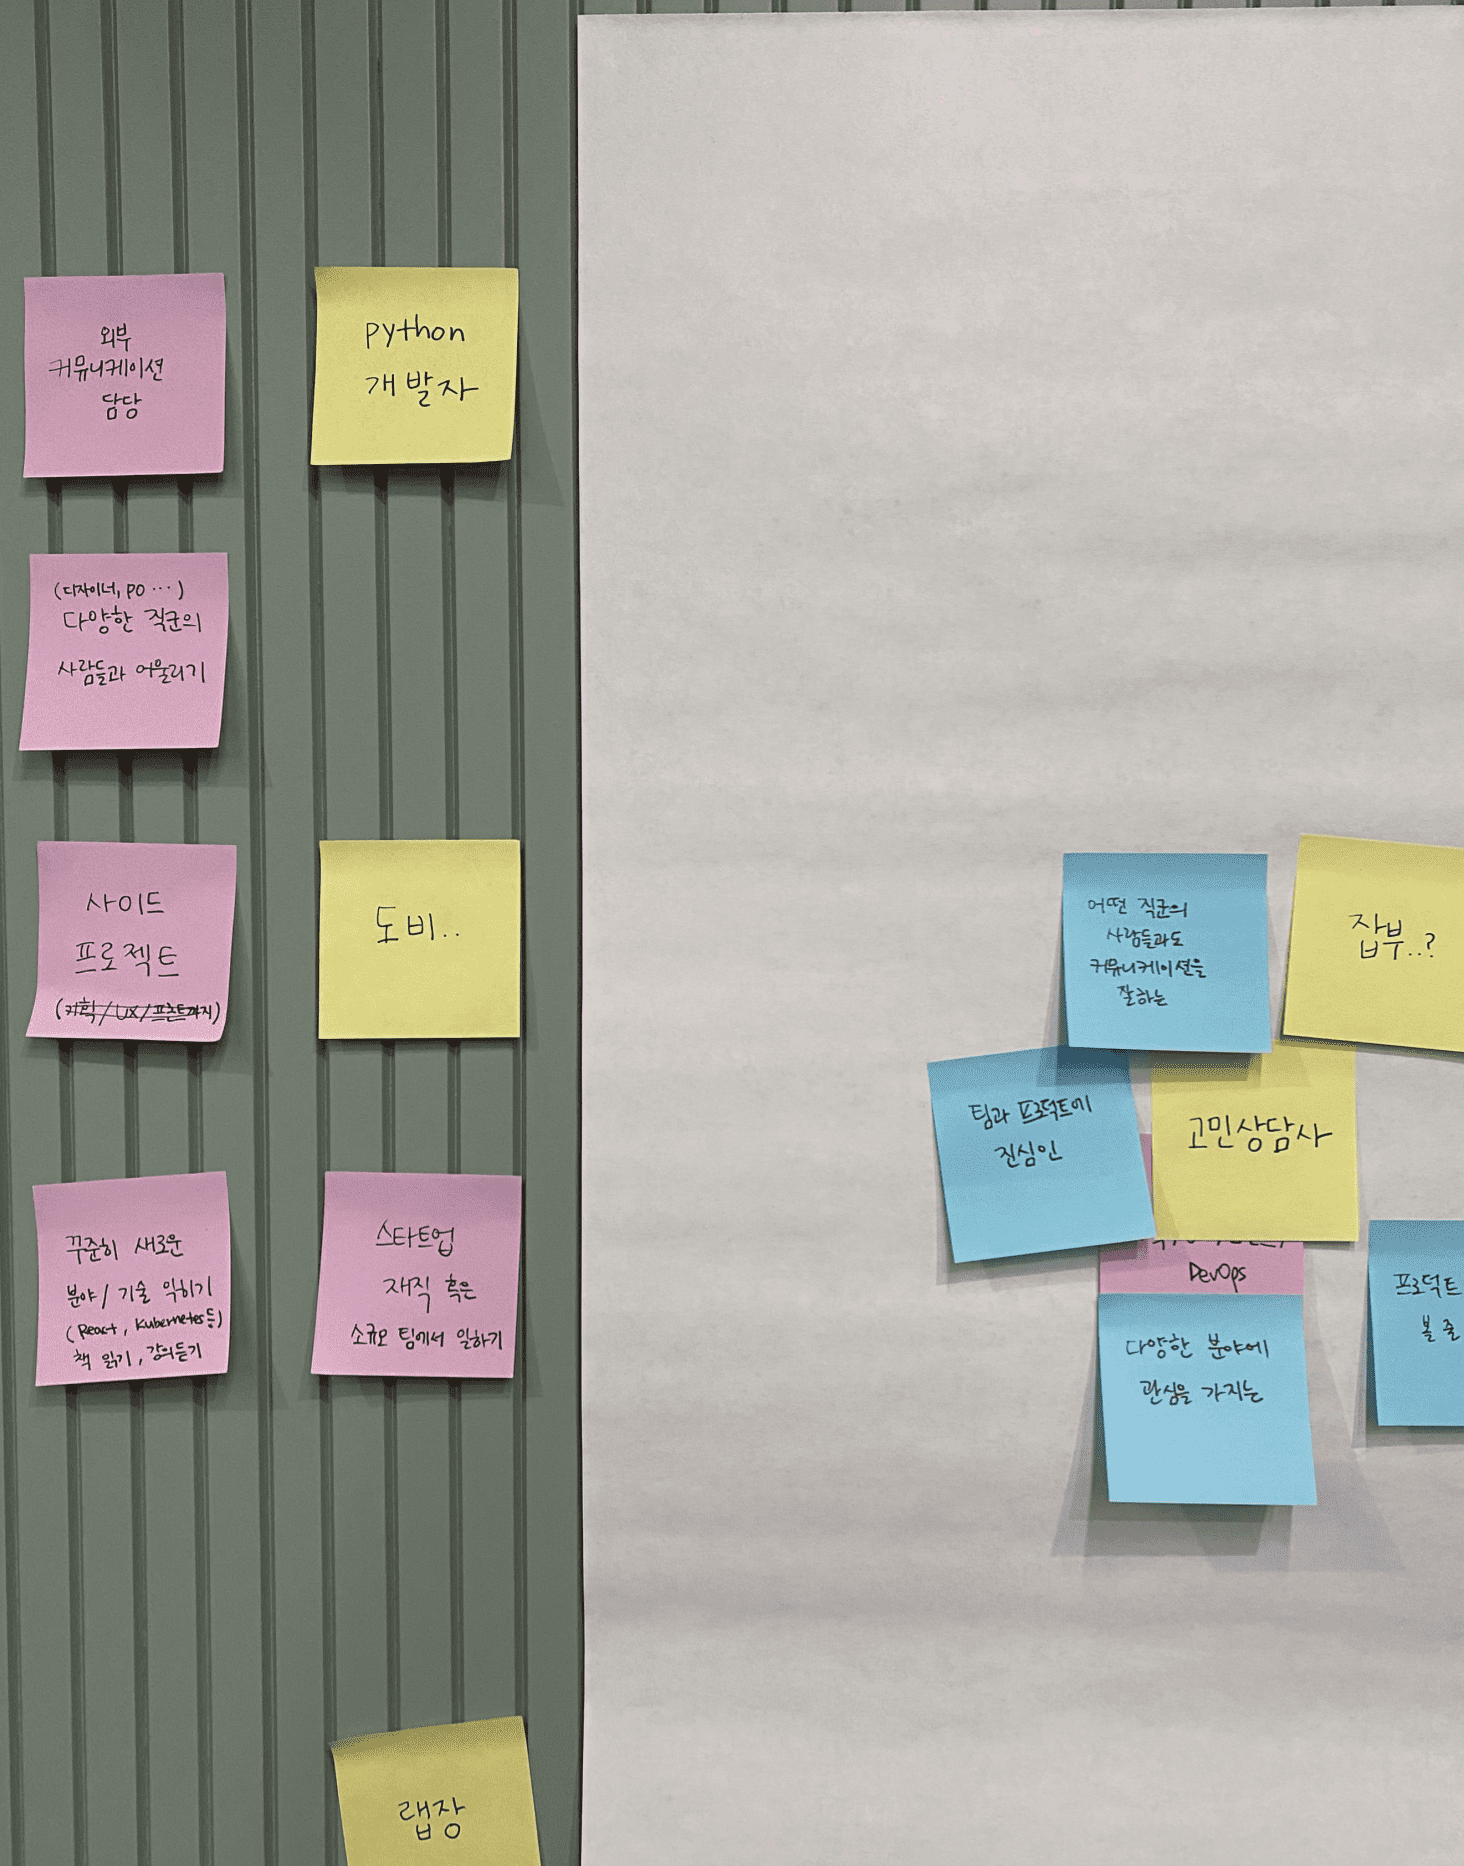 외부
커뮤니케이션
담당
python
개발자
(디자이너, PO ...)
다양한 직군의
사람들과 어울리기
사이드
프로젝트
도비..
꾸준히 새로운
분야/기술 익히기
(React, Kubernetes 등)
책 읽기, 강의듣기
스타트업
재직 혹은
소규모 팀에서 일하기
랩장
어떤 직군의
사람들과도
커뮤니케이션을
잘하는
잡부..?
팀과 프로덕트에
진심인
고민상담사
DevOps
다양한 분야에
관심을 가지는
프로덕트
볼 줄